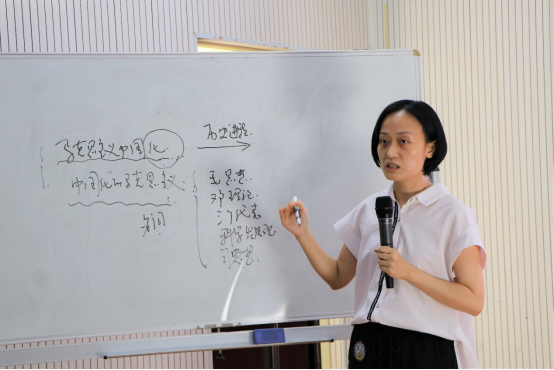 马克思主义中国化
历史进程
中国化的马克思主义
名词
毛思想
邓理论
三个代表
科学发展观
习思想